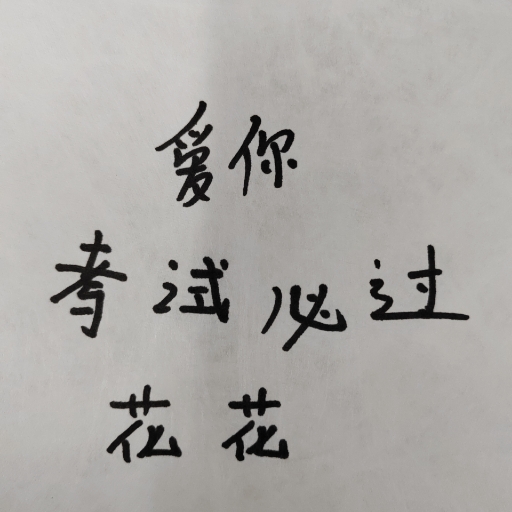 爱你
考试必过
花花